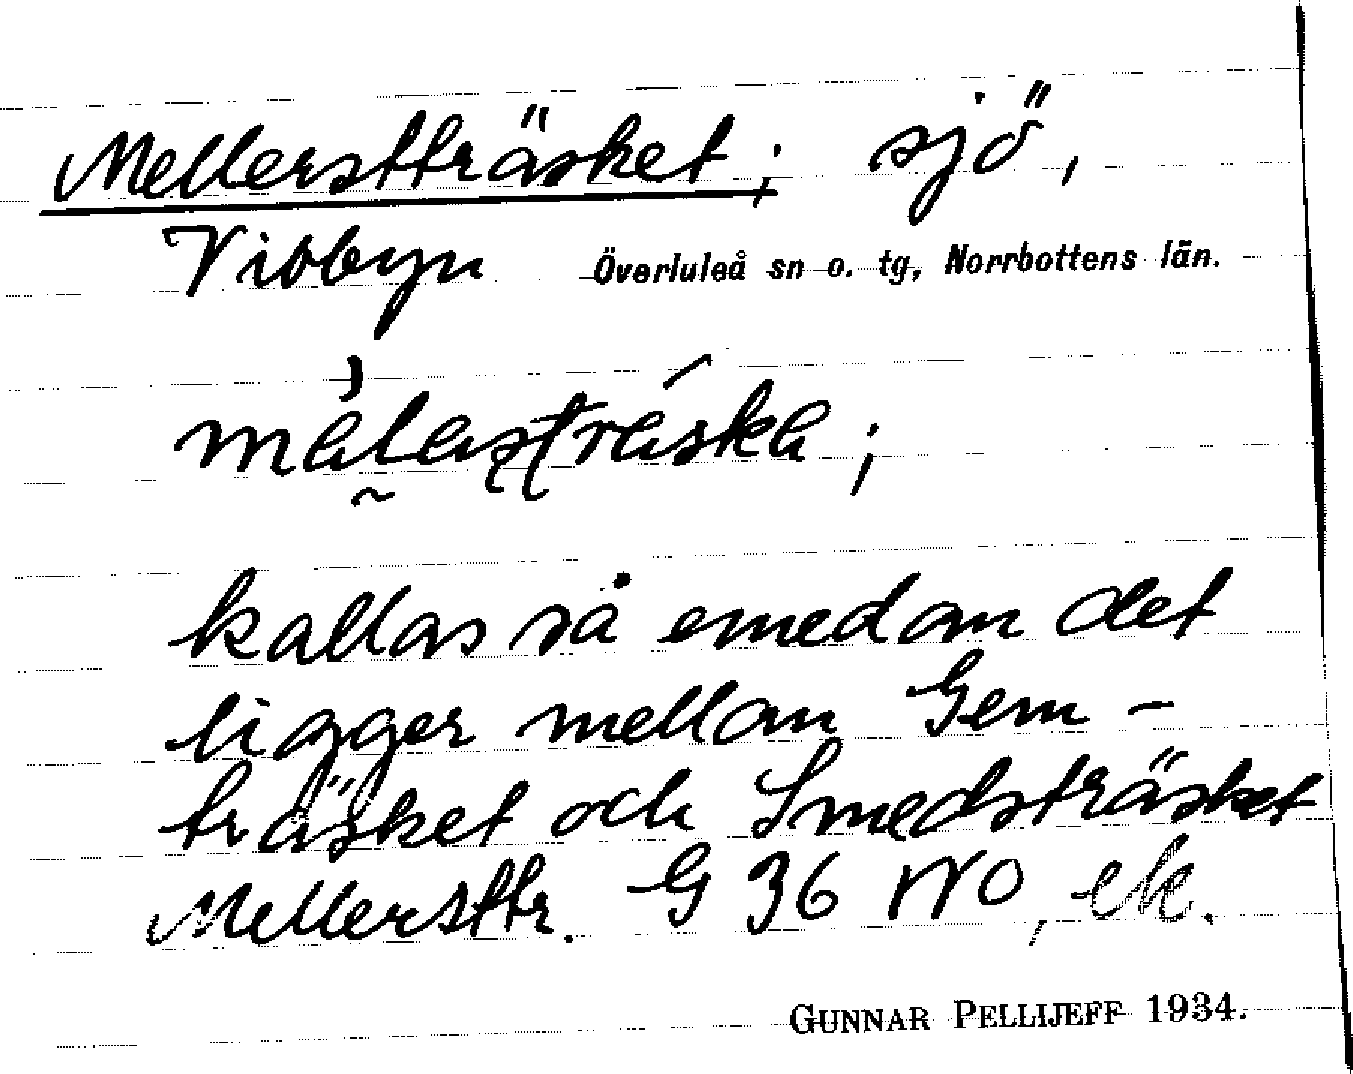 Mellerstträsket; sjö,
Vibbyn Överluleå sn o. tg, Norrbottens län.
kallas så emedan det
ligger mellan Gem-
träsket och Smedsträsket
Mellersttr. G 36 NO, ek.
GUNNAR PELLIJEFF 1934.